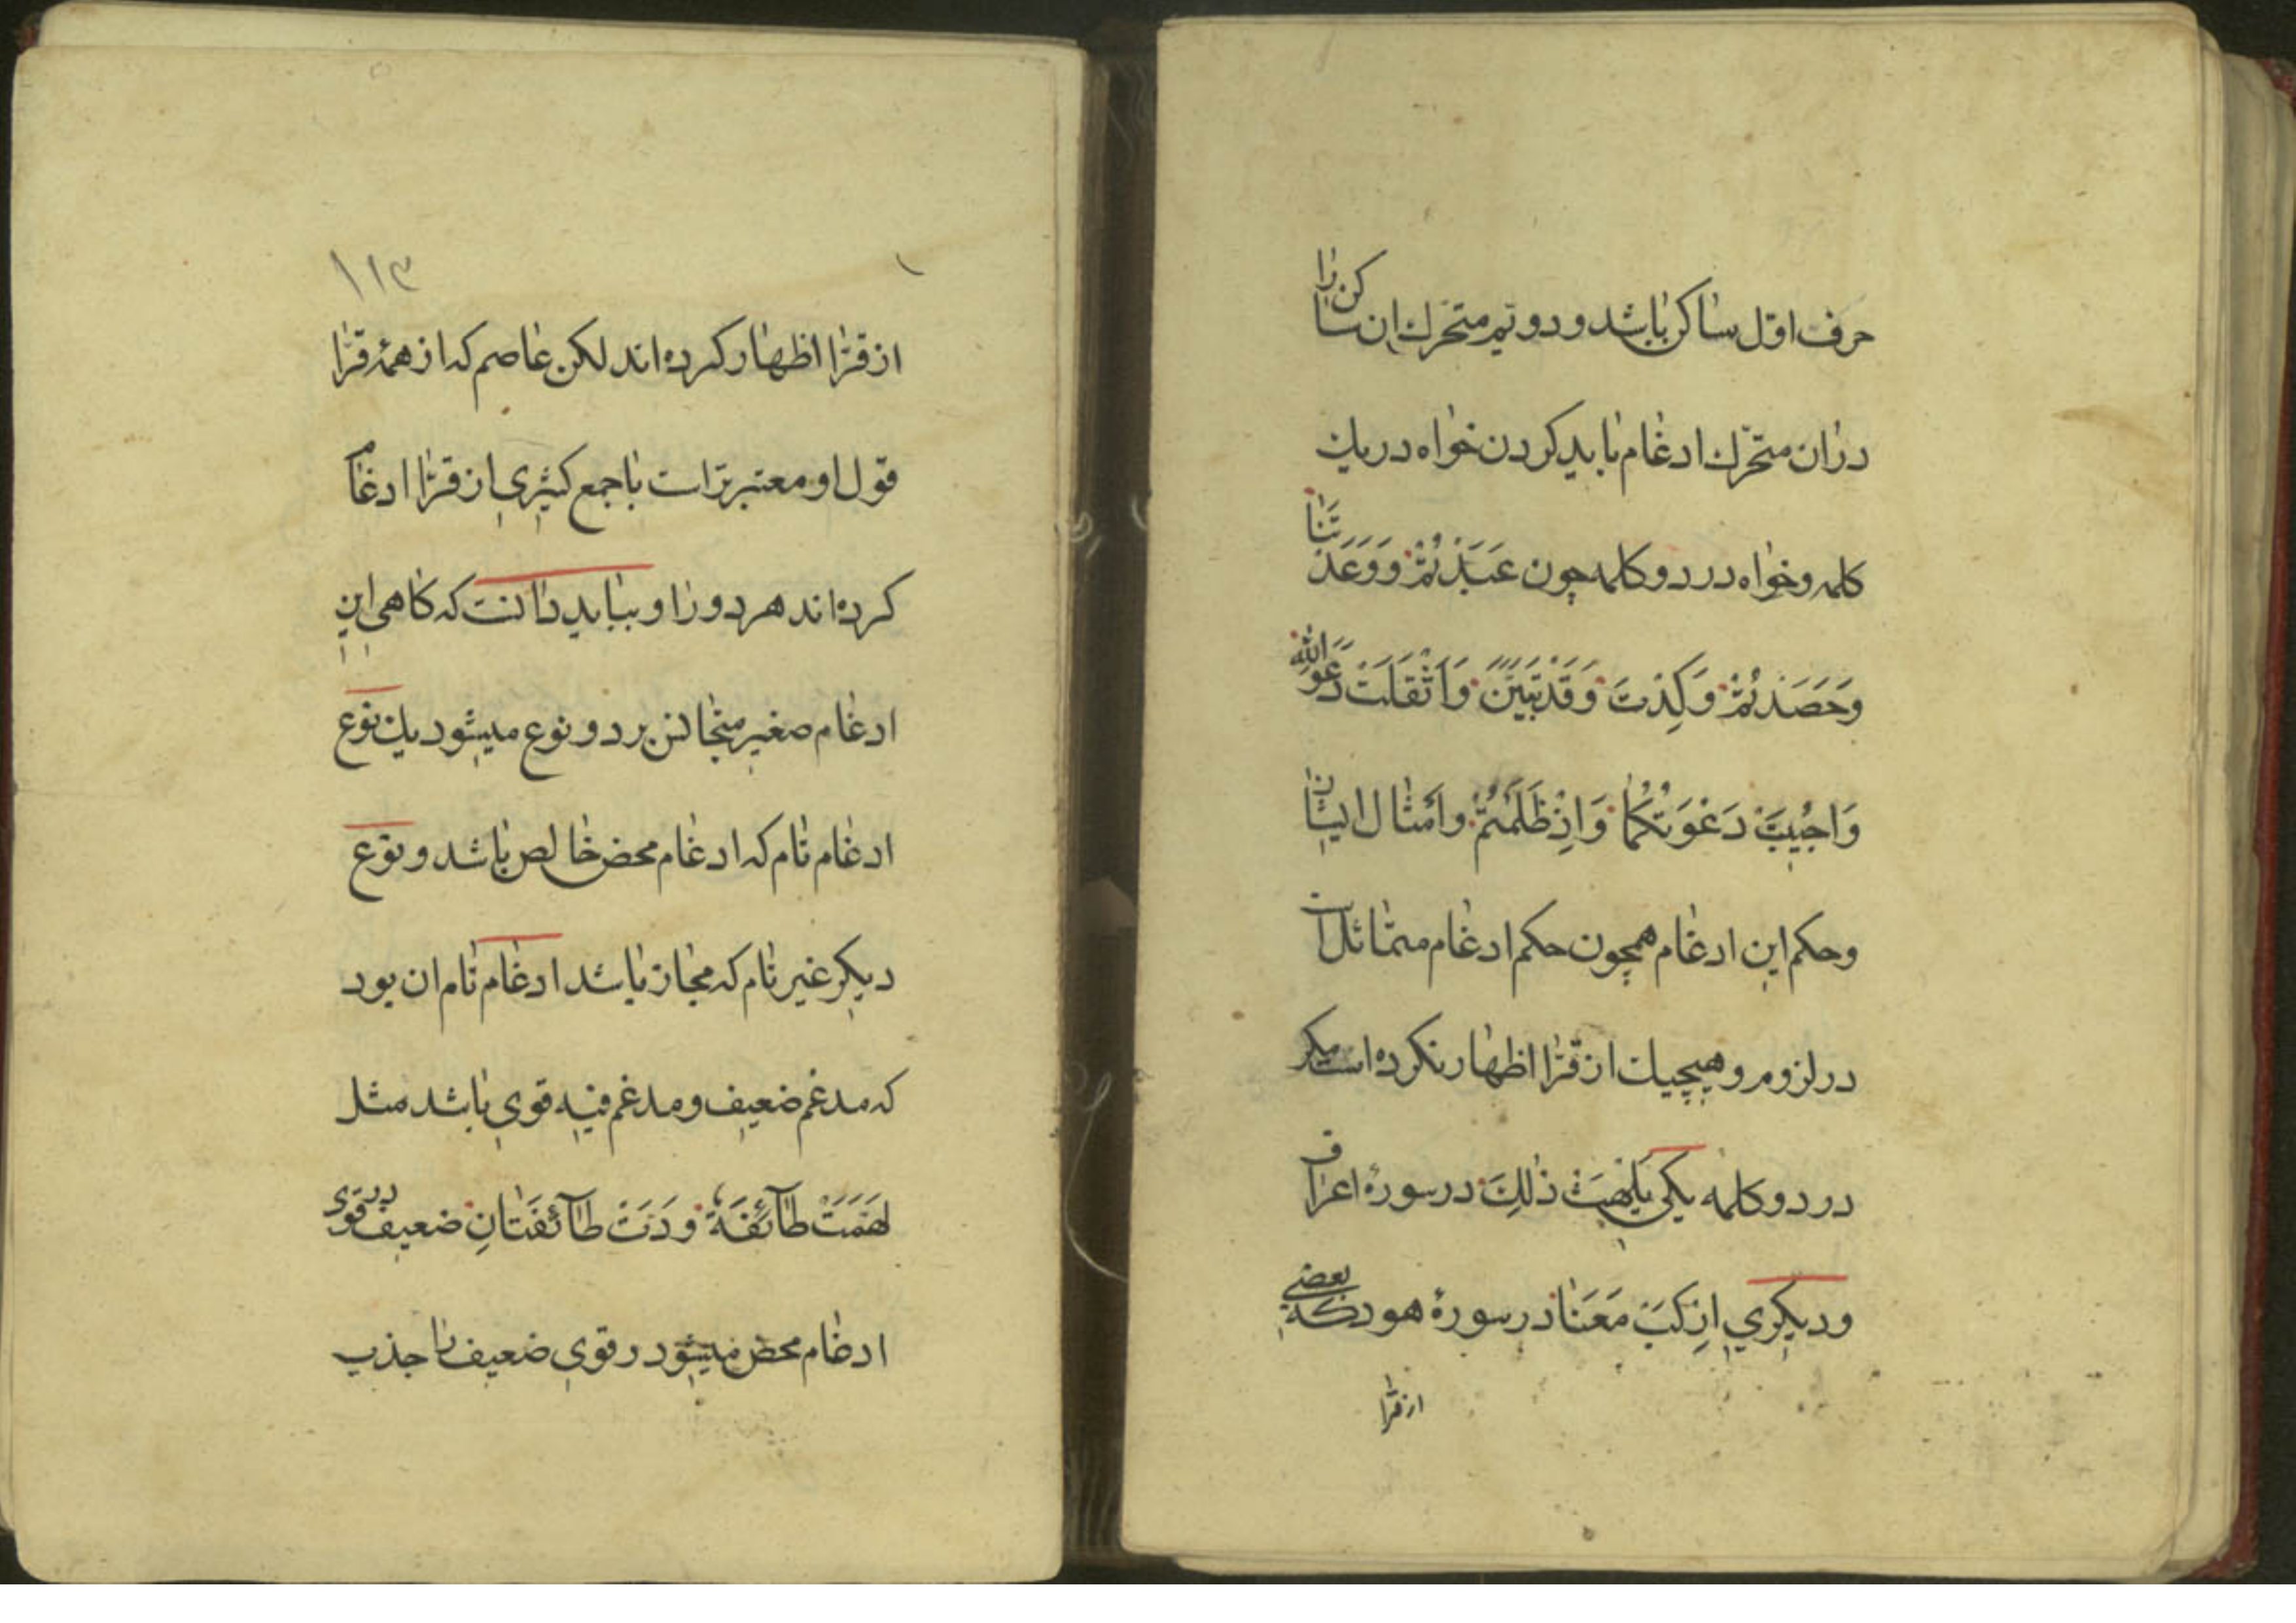 حرف اوّل ساکن باشد و دوّیم متحرّك ان ساکن را
در ان متحرّك ادغام باید کردن خواه در یك
کلمه و خواه در دو کلمه چون عَبَدْتُمْ وَ وَعَدْتَنا
وَحَصَدْتُمْ وَکِدْتَ وَقَدْ تَبَیَّنَ وَاَثْقَلَتْ دَعَوَ اللّٰه
وَاُجْیبَتْ دَعْوَتُکُمٰا وَاِذْ ظَلَمْتُمْ و اَمثال ایشان
و حکم این ادغام همچون حکم ادغام متماثلان است
در لزوم و هیچیك از قرّا اظهار نکرده است مکر
در دو کلمه یکی یَلْهَثْ ذٰلِكَ در سورهٔ اعراف
و دیکری اِرْکَبْ مَعَنٰا در سورهٔ هود که بعضی
از قرّا
١١٣
از قرّا اظهار کرده اند لکن عاصم که از همهٔ قرّا
قول او معتبر تر است با جمع کثیری از قرّا ادغام
کرده اند هر دو را و بباید دانست که کاهی این
ادغام صغیر متجانس بر دو نوع میشود یك نوع
ادغام تام که ادغام محض خالص باشد و نوع
دیکر غیر تام که مجاز باشد ادغام تام ان بود
که مدغم ضعیف و مدغم فیه قوی باشد مثل
لَهَمَّتْ طٰآئِفَةٌ وَدَّتْ طٰآئِفَتٰانِ ضعیف در قوی
ادغام محض میشود و قوی ضعیف را جذب